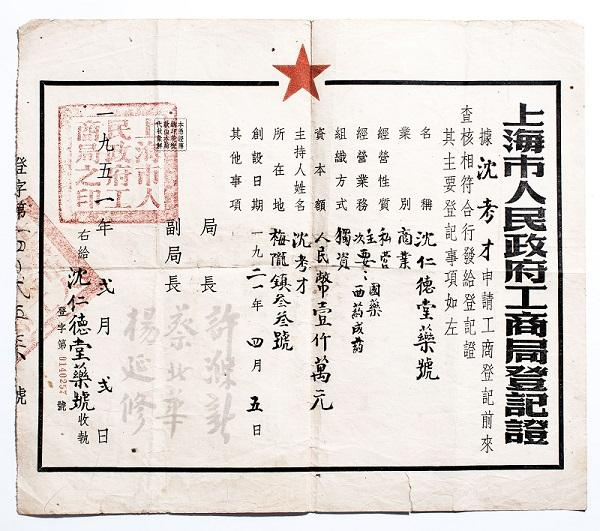 上海市人民政府工商局登記證
據沈考才申請工商登記前來
查核相符合行發給登記證
其主要登記事項如左
名稱 沈仁德堂藥號
業別 商業
經營性質 私營
經營業務 主要：國藥 次要：西药成药
組織方式 獨資
資本額 人民幣壹仟萬元
主持人姓名 沈考才
所在地 梅隴鎮叁叁號
創設日期 一九二一年四月五日
其他事項
局長
副局長
蔡北華
楊延修
上海市人民政府工商局之印
一九五一年弍月弍日
右給沈仁德堂藥號收執
登字第0140257號